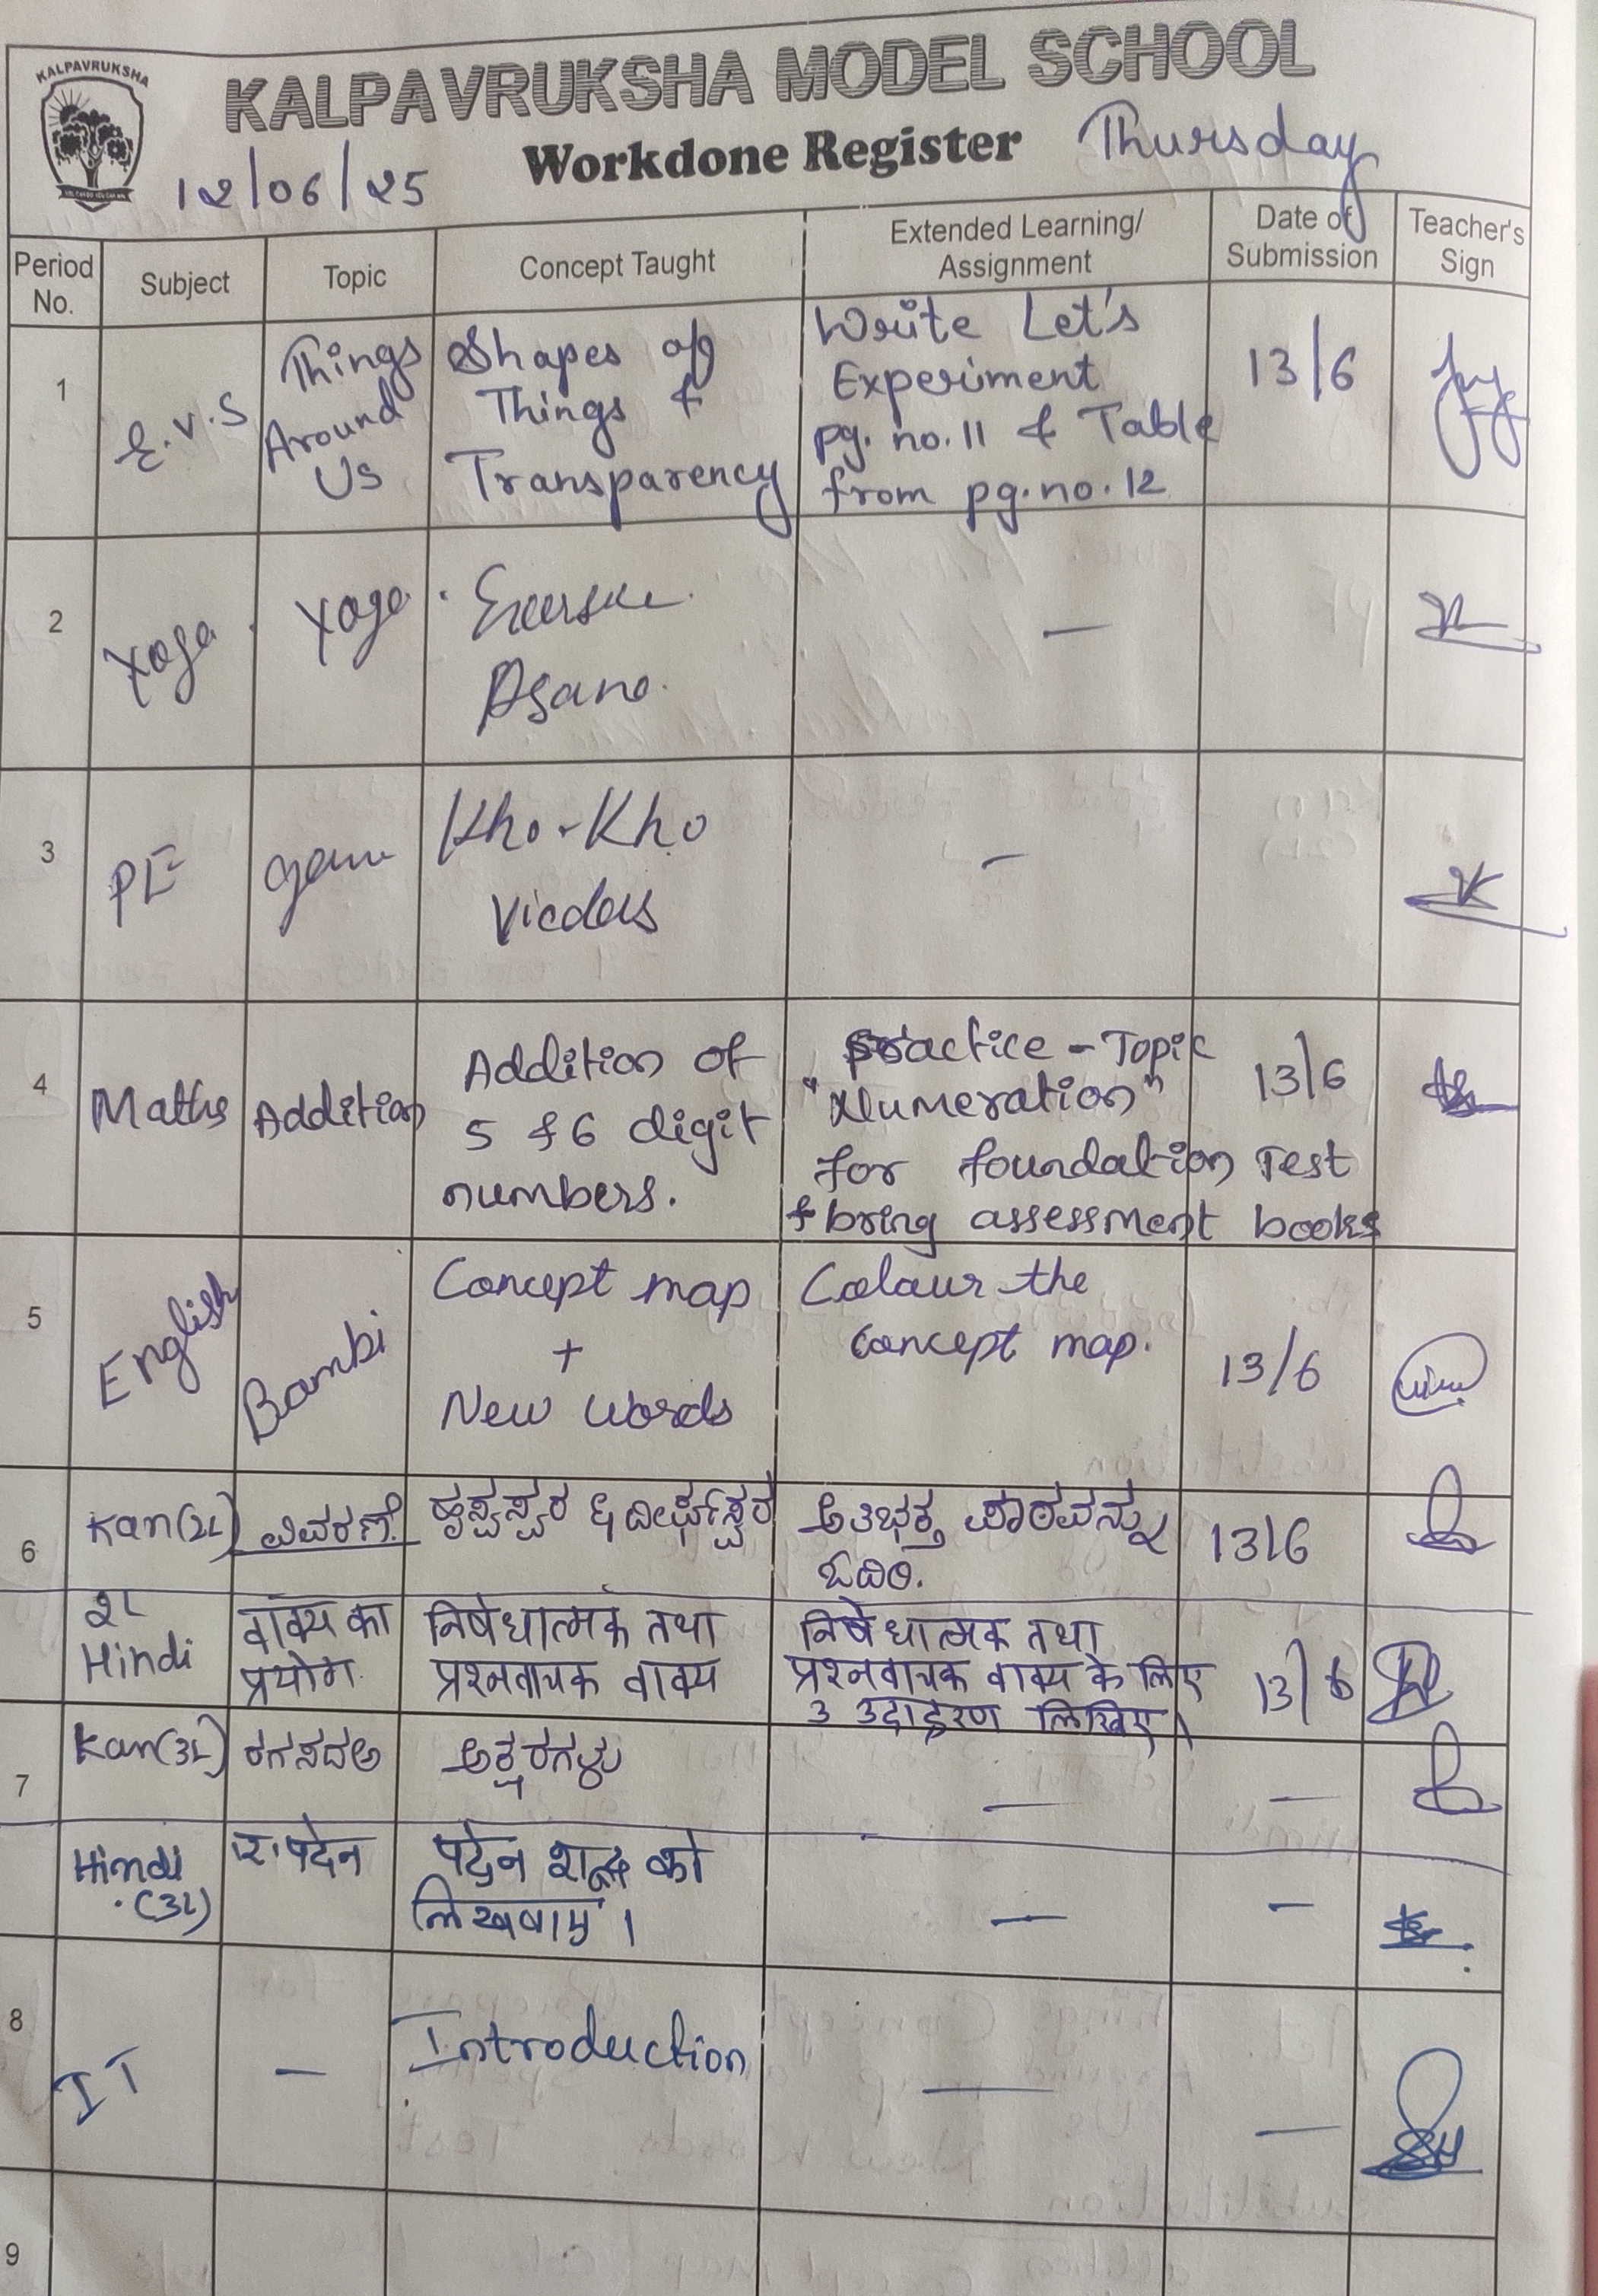 KALPAVRUKSHA
KALPAVRUKSHA MODEL SCHOOL
Workdone Register Thursday
12/06/25
Period No. Subject Topic Concept Taught Extended Learning/ Assignment Date of Submission Teacher's Sign
1 E.V.S Things Around Us
Shapes of
Things &
Transparency
Write Let's
Experiment
pg. no. 11 & Table
from pg. no. 12
13/6
2 Yoga Yoga
Asana
—
3 PE Game
Kho-Kho
—
4 Maths Addition
Addition of
5 & 6 digit
numbers.
Practice - Topic
"Numeration"
for foundation Test
& bring assessment books
13/6
5 English Bambi
Concept map
+
New words
Colour the
concept map.
13/6
6 Kan(2L) ವಿವರಣೆ ಹೃಸ್ವಸ್ವರ & ದೀರ್ಘಸ್ವರ
ಪಾಠವನ್ನು
ಓದಿರಿ.
13/6
2L
Hindi
वाक्य का
प्रयोग
निषेधात्मक तथा
प्रश्नवाचक वाक्य
निषेधात्मक तथा
प्रश्नवाचक वाक्य के लिए
3 उदाहरण लिखिए।
13/6
7 Kan(3L) ರಗಸದಅ ಅಕ್ಷರಗಳು — —
Hindi
(3L)
शब्द को
लिखवाएं।
— —
8 IT — Introduction — —
9